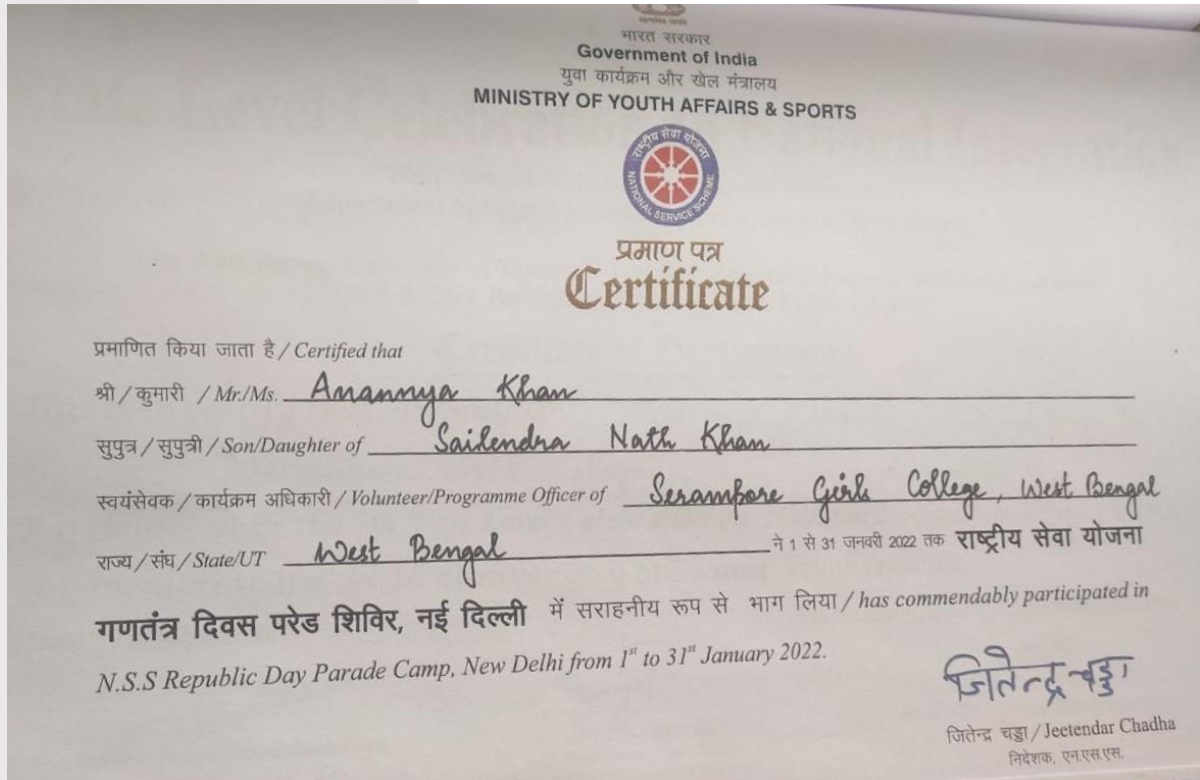 भारत सरकार
Government of India
युवा कार्यक्रम और खेल मंत्रालय
MINISTRY OF YOUTH AFFAIRS & SPORTS
राष्ट्रीय सेवा योजना
NATIONAL SERVICE SCHEME
प्रमाण पत्र
Certificate
प्रमाणित किया जाता है / Certified that
श्री / कुमारी / Mr./Ms. Anannya Khan
सुपुत्र / सुपुत्री / Son/Daughter of Sailendra Nath Khan
स्वयंसेवक / कार्यक्रम अधिकारी / Volunteer/Programme Officer of Serampore Girls College, West Bengal
राज्य / संघ / State/UT West Bengal ने 1 से 31 जनवरी 2022 तक राष्ट्रीय सेवा योजना
गणतंत्र दिवस परेड शिविर, नई दिल्ली में सराहनीय रूप से भाग लिया / has commendably participated in
N.S.S Republic Day Parade Camp, New Delhi from 1st to 31st January 2022.
जितेन्द्र चड्ढा
जितेन्द्र चड्ढा / Jeetendar Chadha
निदेशक, एन.एस.एस.